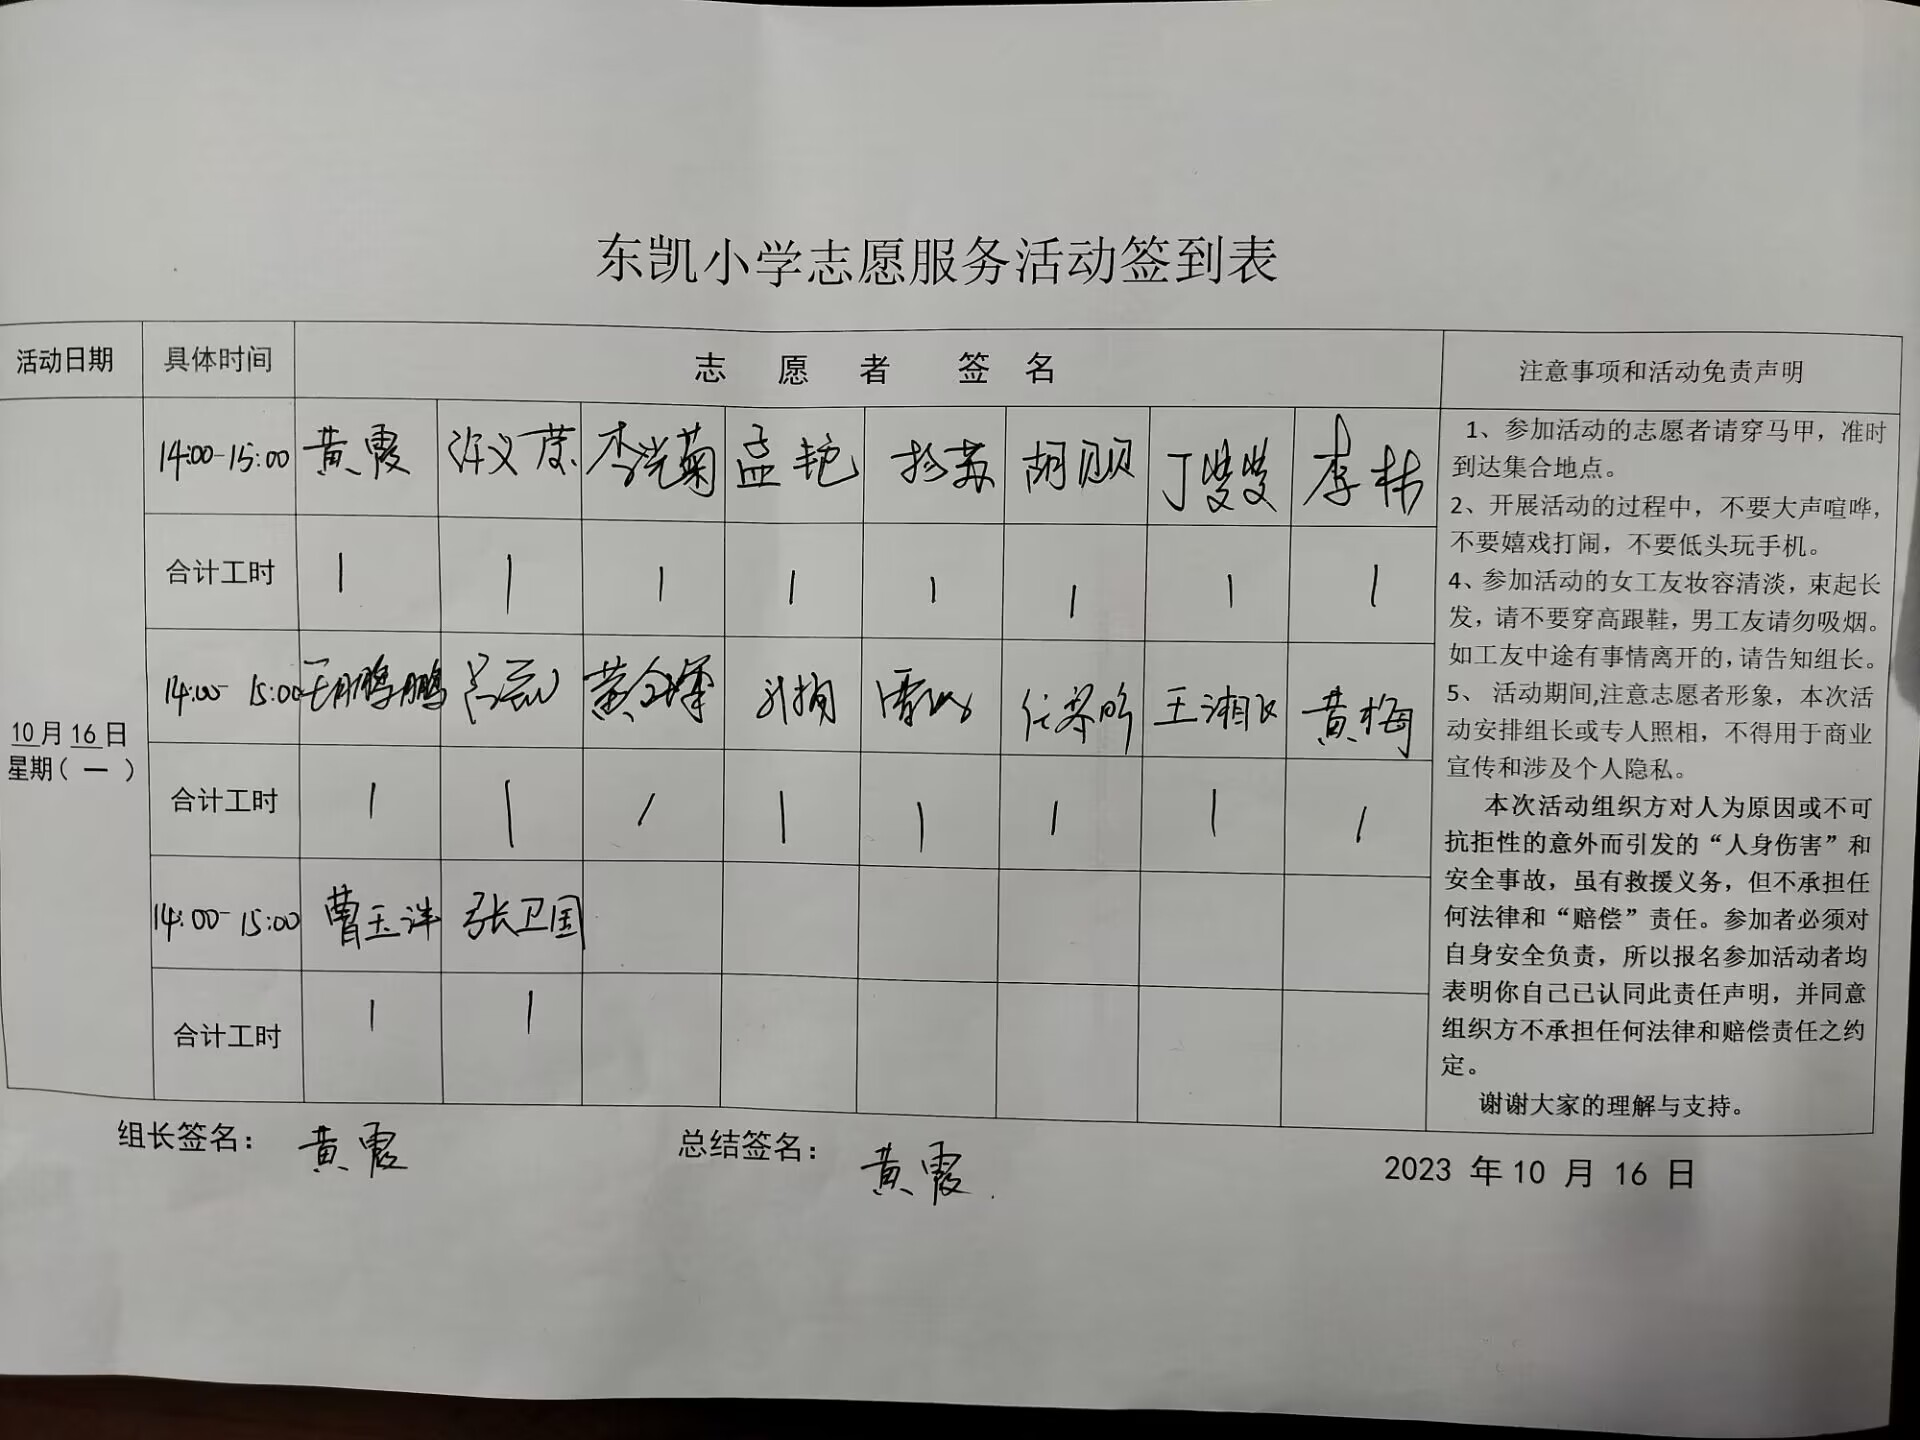 东凯小学志愿服务活动签到表
活动日期 具体时间 志 愿 者 签 名 注意事项和活动免责声明
10月16日
星期(一)
14:00-15:00 黄霞 许义蓉 李光菊 孟艳 杨苏 胡丽 丁雙雙 李林
合计工时 1 1 1 1 1 1 1 1
14:00-15:00 王鹏鹏 黄金辉 雷 王湘 黄梅
合计工时 1 1 1 1 1 1 1 1
14:00-15:00 曹玉洋 张卫国
合计工时 1 1
1、参加活动的志愿者请穿马甲，准时
到达集合地点。
2、开展活动的过程中，不要大声喧哗，
不要嬉戏打闹，不要低头玩手机。
4、参加活动的女工友妆容清淡，束起长
发，请不要穿高跟鞋，男工友请勿吸烟。
如工友中途有事情离开的，请告知组长。
5、 活动期间,注意志愿者形象，本次活
动安排组长或专人照相，不得用于商业
宣传和涉及个人隐私。
本次活动组织方对人为原因或不可
抗拒性的意外而引发的“人身伤害”和
安全事故，虽有救援义务，但不承担任
何法律和“赔偿”责任。参加者必须对
自身安全负责，所以报名参加活动者均
表明你自己已认同此责任声明，并同意
组织方不承担任何法律和赔偿责任之约
定。
谢谢大家的理解与支持。
组长签名： 黄霞 总结签名： 黄霞
2023 年 10 月 16 日